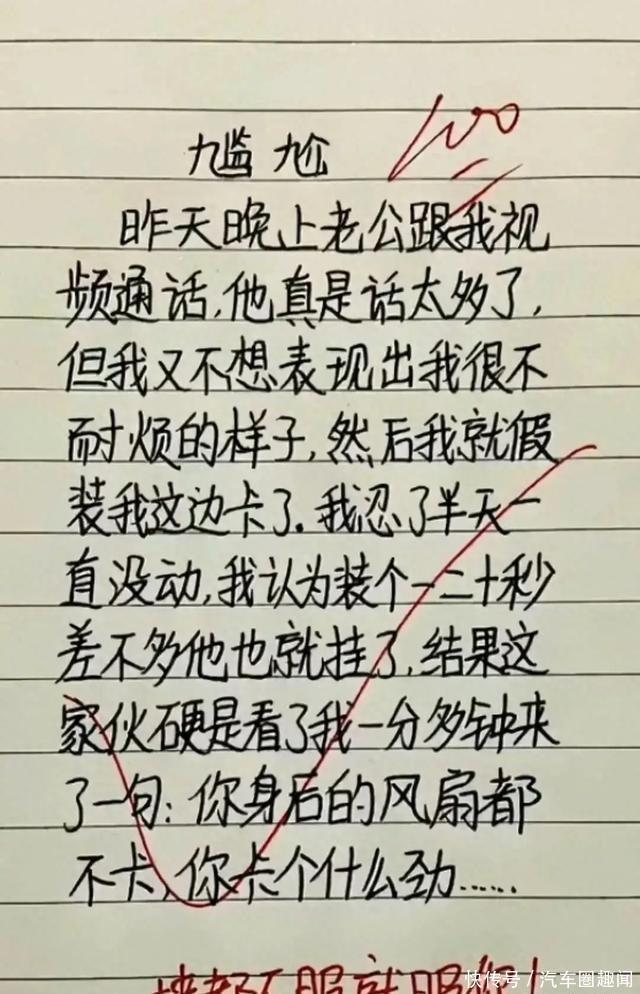 尴尬
100
昨天晚上老公跟我视
频通话,他真是话太多了,
但我又不想表现出我很不
耐烦的样子,然后我就假
装我这边卡了.我忍了半天一
直没动,我认为装个一二十秒
差不多他也就挂了,结果这
家伙硬是看了我一分多钟来
了一句:你身后的风扇都
不卡,你卡个什么劲......
不服就服你!
快传号/汽车圈趣闻